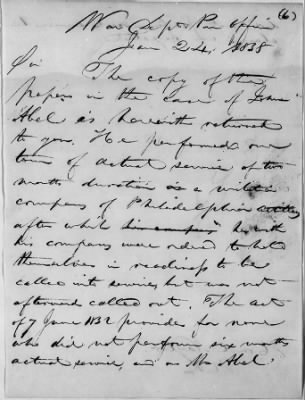 (6)
War Dept. Pen Office
Jan 24. 1838
Sir The copy of the
papers in the case of
Abel is herewith returned
to you. He performed one
term of actual service of two
months duration in a militia
company of Philadelphia
after which he with
his company were ordered to hold
themselves in readiness to be
called into service, but was not
afterward called out. The act
of 7 June 1832 provides for none
who did not perform six months
actual service, and as Mr Abel